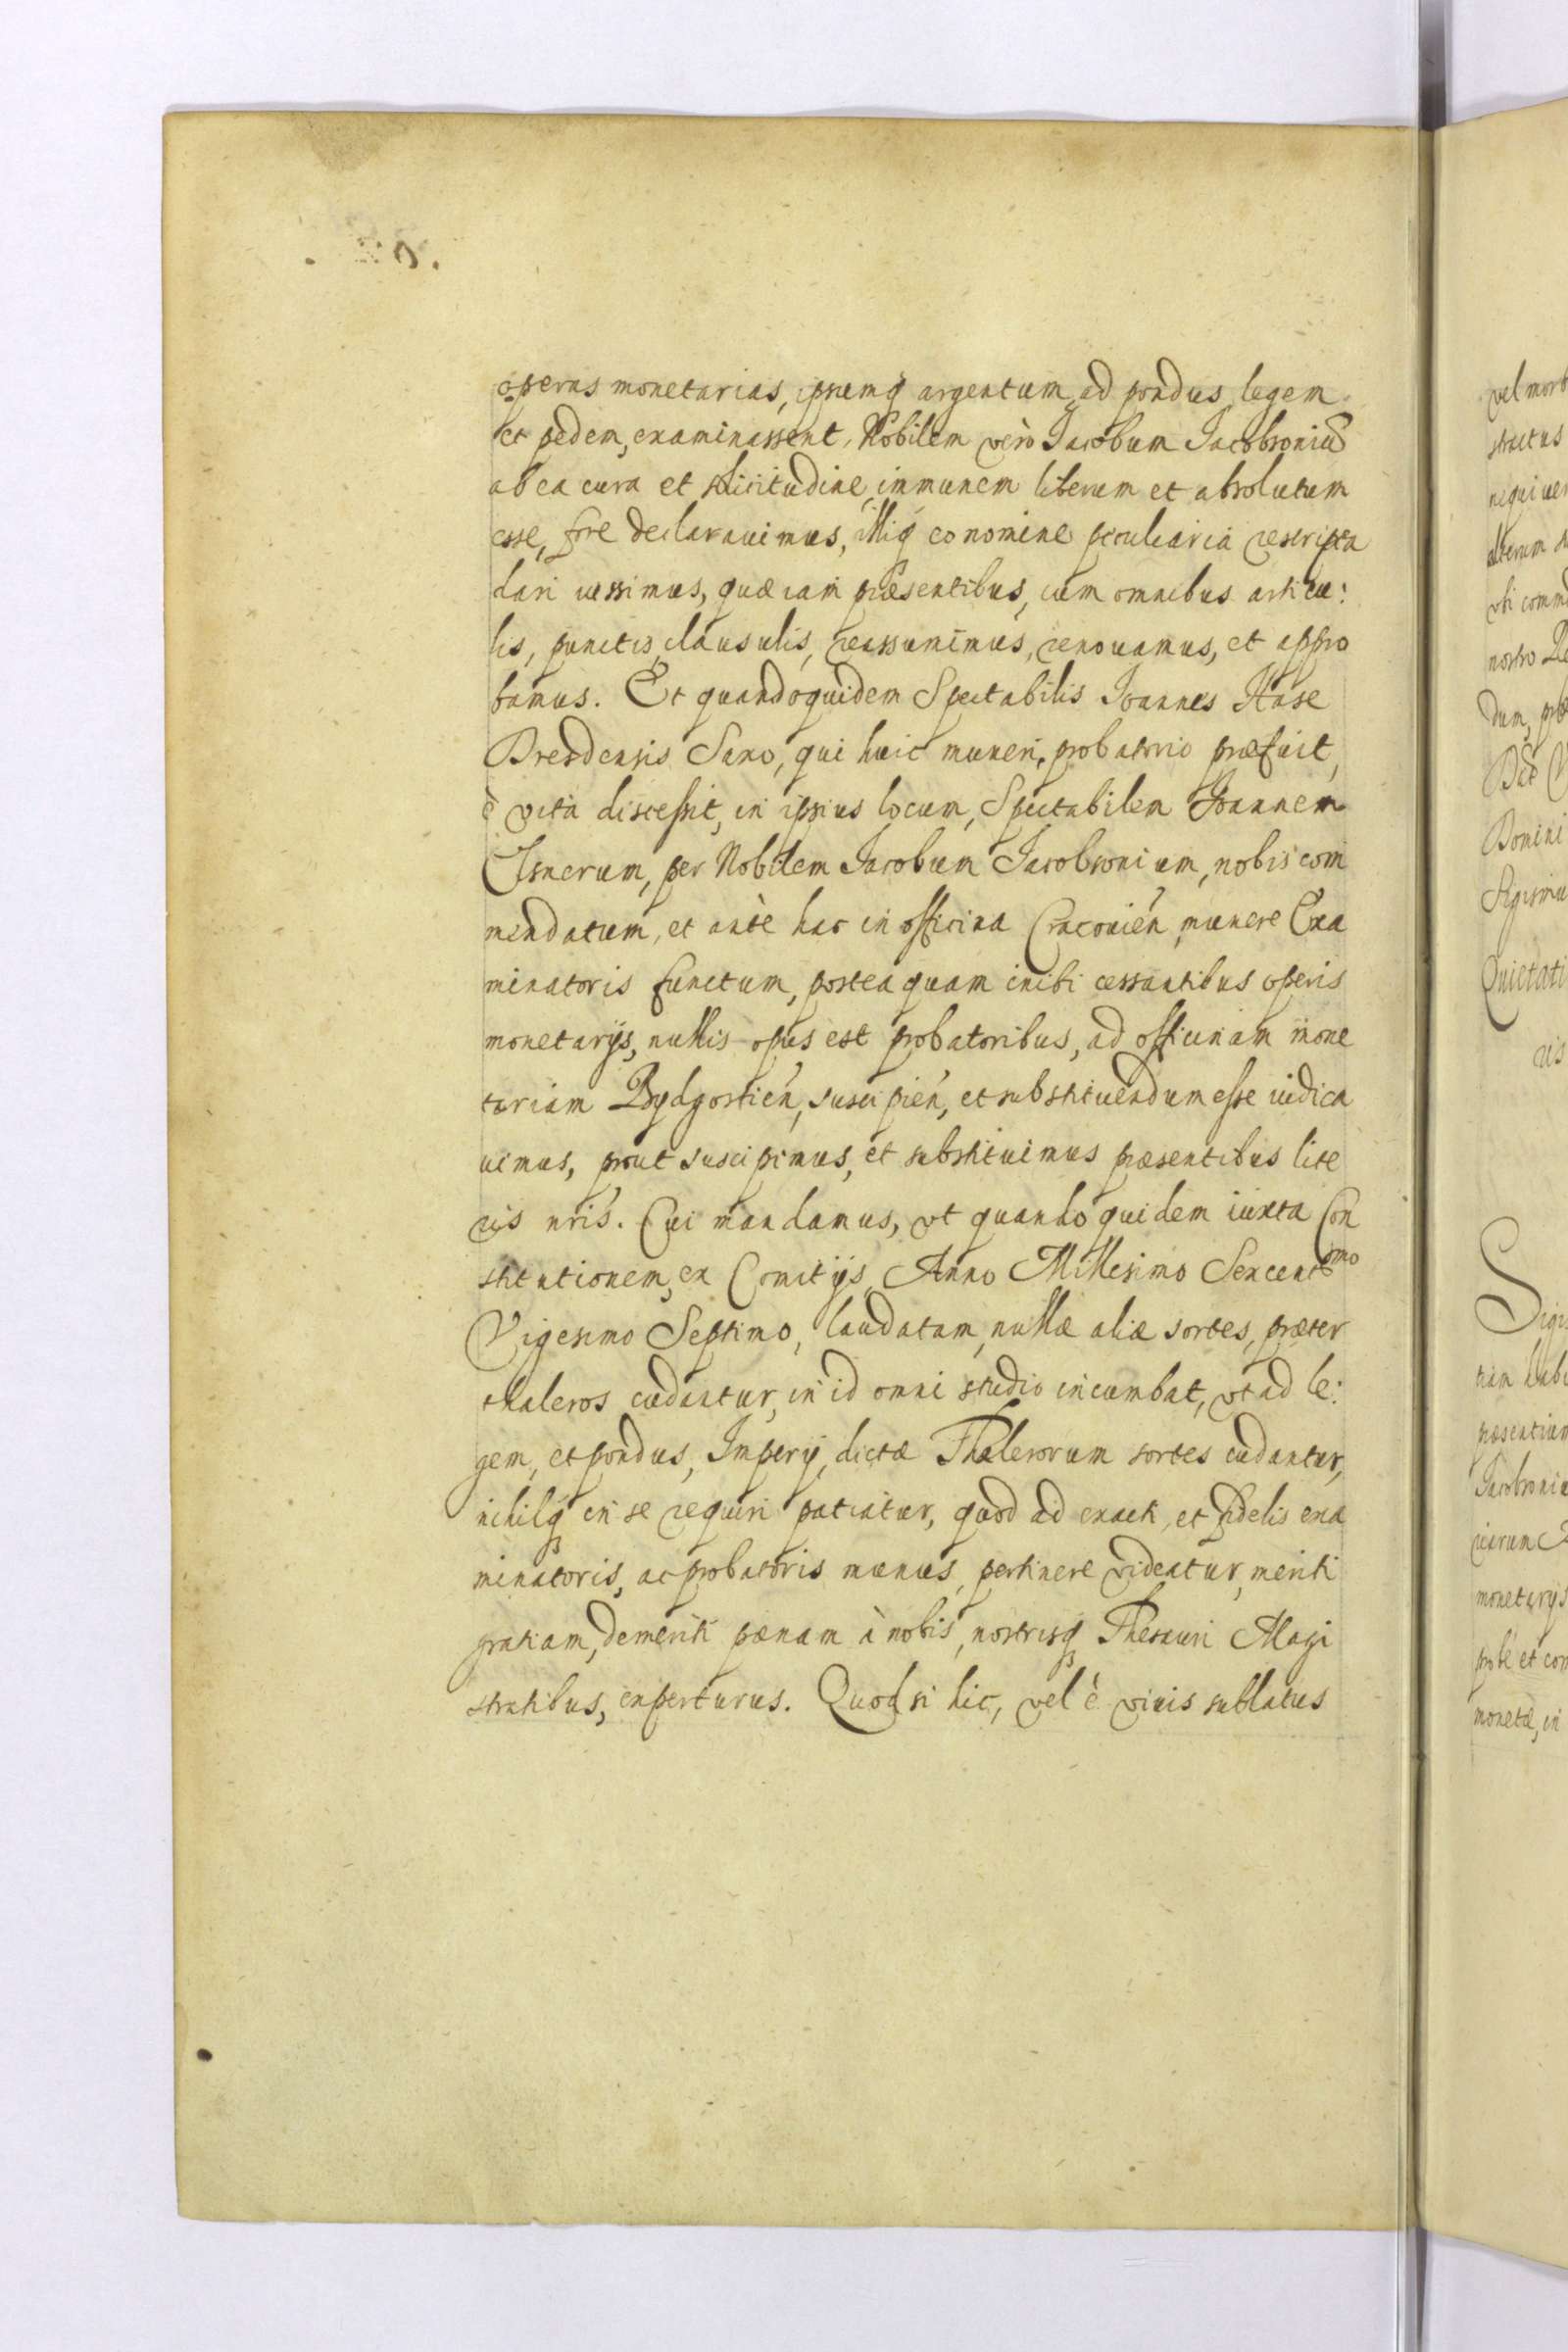 operas monetarias, ipsumq́ argentum, ad pondus, legem
et pedem, examinassent, Nobilem verò Iacobum Iacobsoniū
ab ea cura et solicitudine, immunem liberum et absolutum
esse, fore declarauimus, illiq́ eo nomine peculiaria rescripta
dari iussimus, quæ iam præsentibus, cum omnibus articu:
lis, punctis, clausulis, reassumimus, renouamus, et appro
bamus. Et quandoquidem Spectabilis Ioannes Hase
Dresdensis Saxo, qui huic muneri, probatorio præfuit,
è vita discessit, in ipsius locum, Spectabilem Ioannem
Isnerum, per Nobilem Iacobum Iacobsonium, nobis com
mendatum, et ante hac in officina Cracouień, munere Exa
minatoris functum, postea quam inibi cessantibus operis
monetarijs, nullis opus est probatoribus, ad officinam mone
tariam Bydgostień, suscipień, et substituendum esse iudica
uimus, prout suscipimus, et substituimus præsentibus lite
ris nris. Cui mandamus, vt quando quidem iuxta Con
stitutionem, ex Comitijs, Anno Millesimo Sexcentᵒmo
Vigesimo Septimo, laudatam, nullæ aliæ sortes, præter
thaleros cudantur, in id omni studio incumbat, vt ad le:
gem, et pondus, Imperij, dictæ Thalerorum sortes cudantur,
nihilq́ in se requiri patiatur, quod ad exacti, et fidelis exa
minatoris, ac probatoris munus, pertinere videatur, meriti
gratiam, demeriti pænam à nobis, nostrisq́ Thesauri Magi
stratibus, experturus. Quod si hic, vel è viuis sublatus
vel morb
structus
nequiuer
alterum
vbi comm
nostro
dum, præ
Dat
Domini
Sigismu
Quietati
ris
Sigis
tiam habi
præsentium
Iacobsoniu
monetarijs
probe et con
monetæ, in